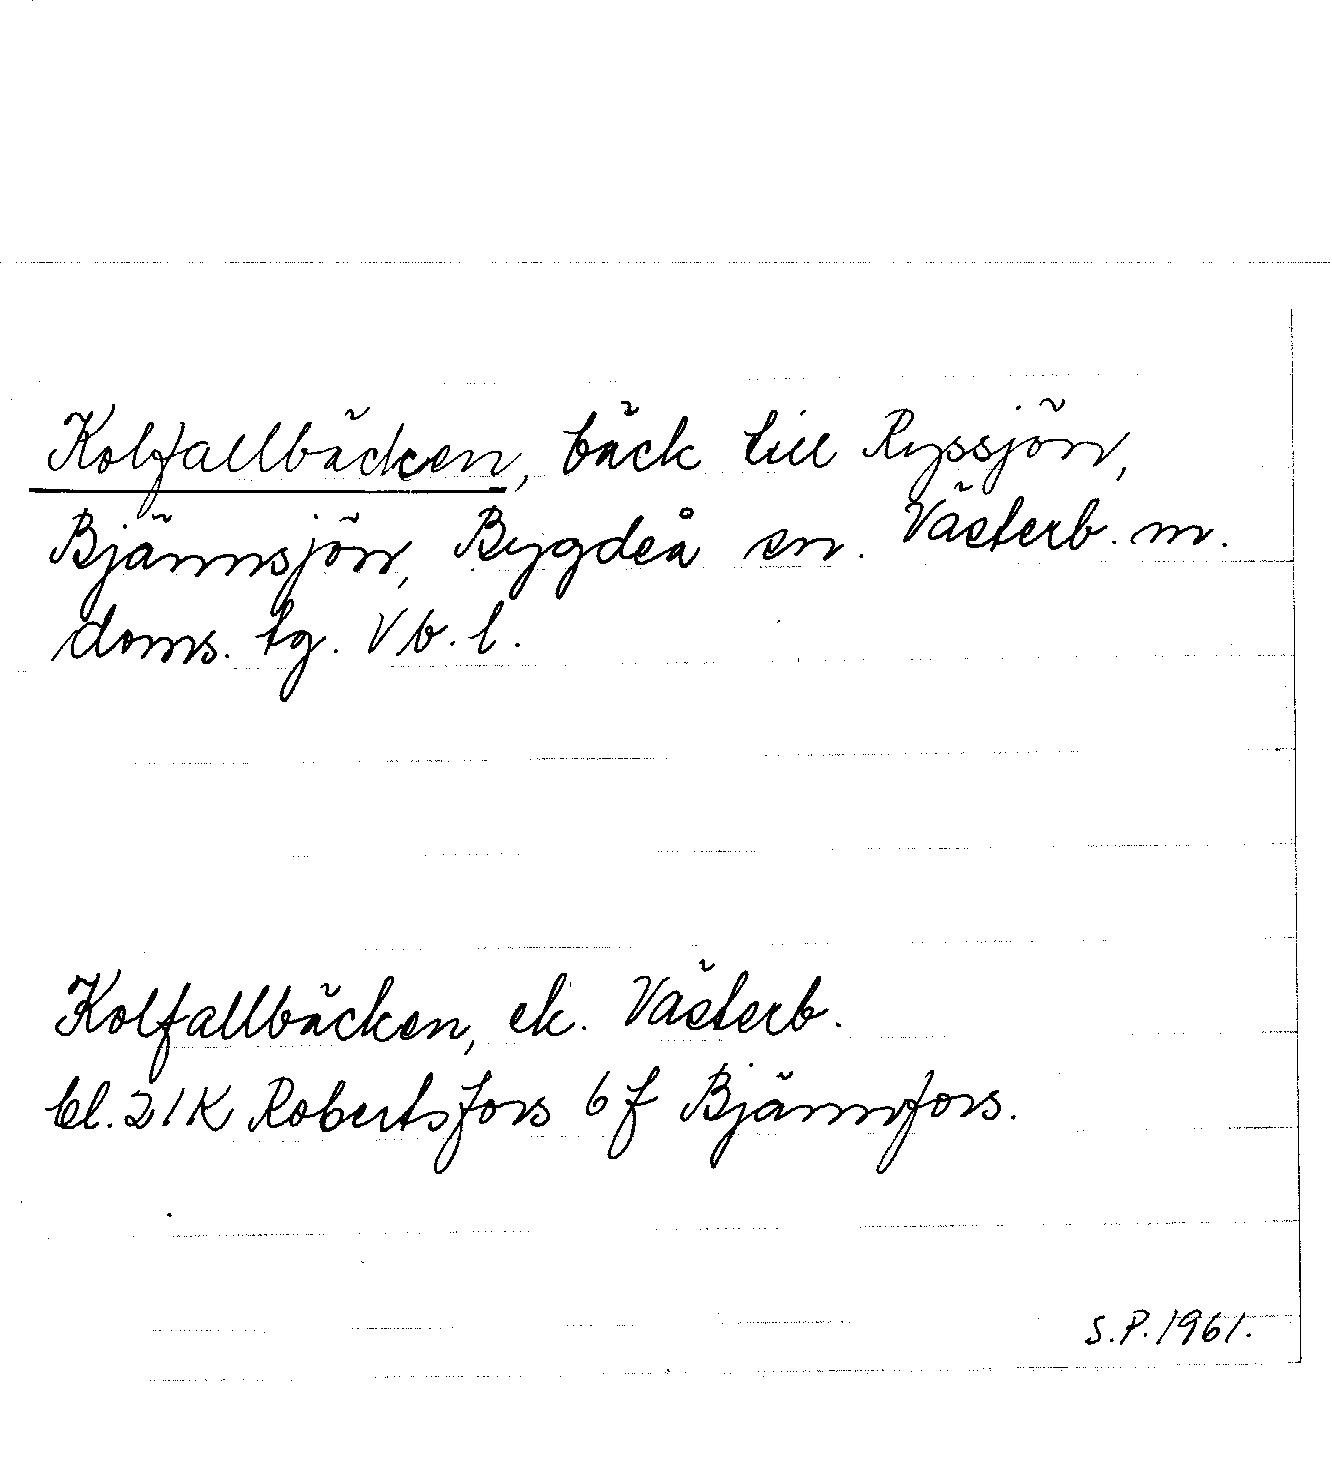 Kolfallbäcken, bäck till Ryssjön,
Bjännsjön, Bygdeå sn. Västerb. m.
doms. tg. Vb. l.
Kolfallbäcken, ek. Västerb.
bl. 21K Robertsfors 6f Bjännfors.
S.P. 1961.